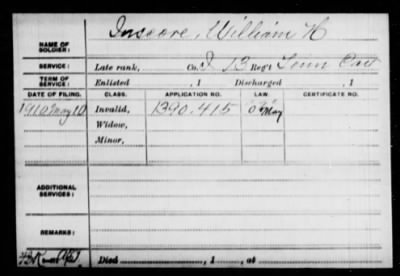 NAME OF SOLDIER: Inscore, William H
SERVICE: Late rank, Co. I 13 Reg't Tenn Cav
TERM OF SERVICE: Enlisted , 1 Discharged , 1
DATE OF FILING. CLASS. APPLICATION NO. LAW. CERTIFICATE NO.
1910 May 10 Invalid, 1390.415 May
Widow,
Minor,
ADDITIONAL SERVICES:
REMARKS:
Died , 1 , at